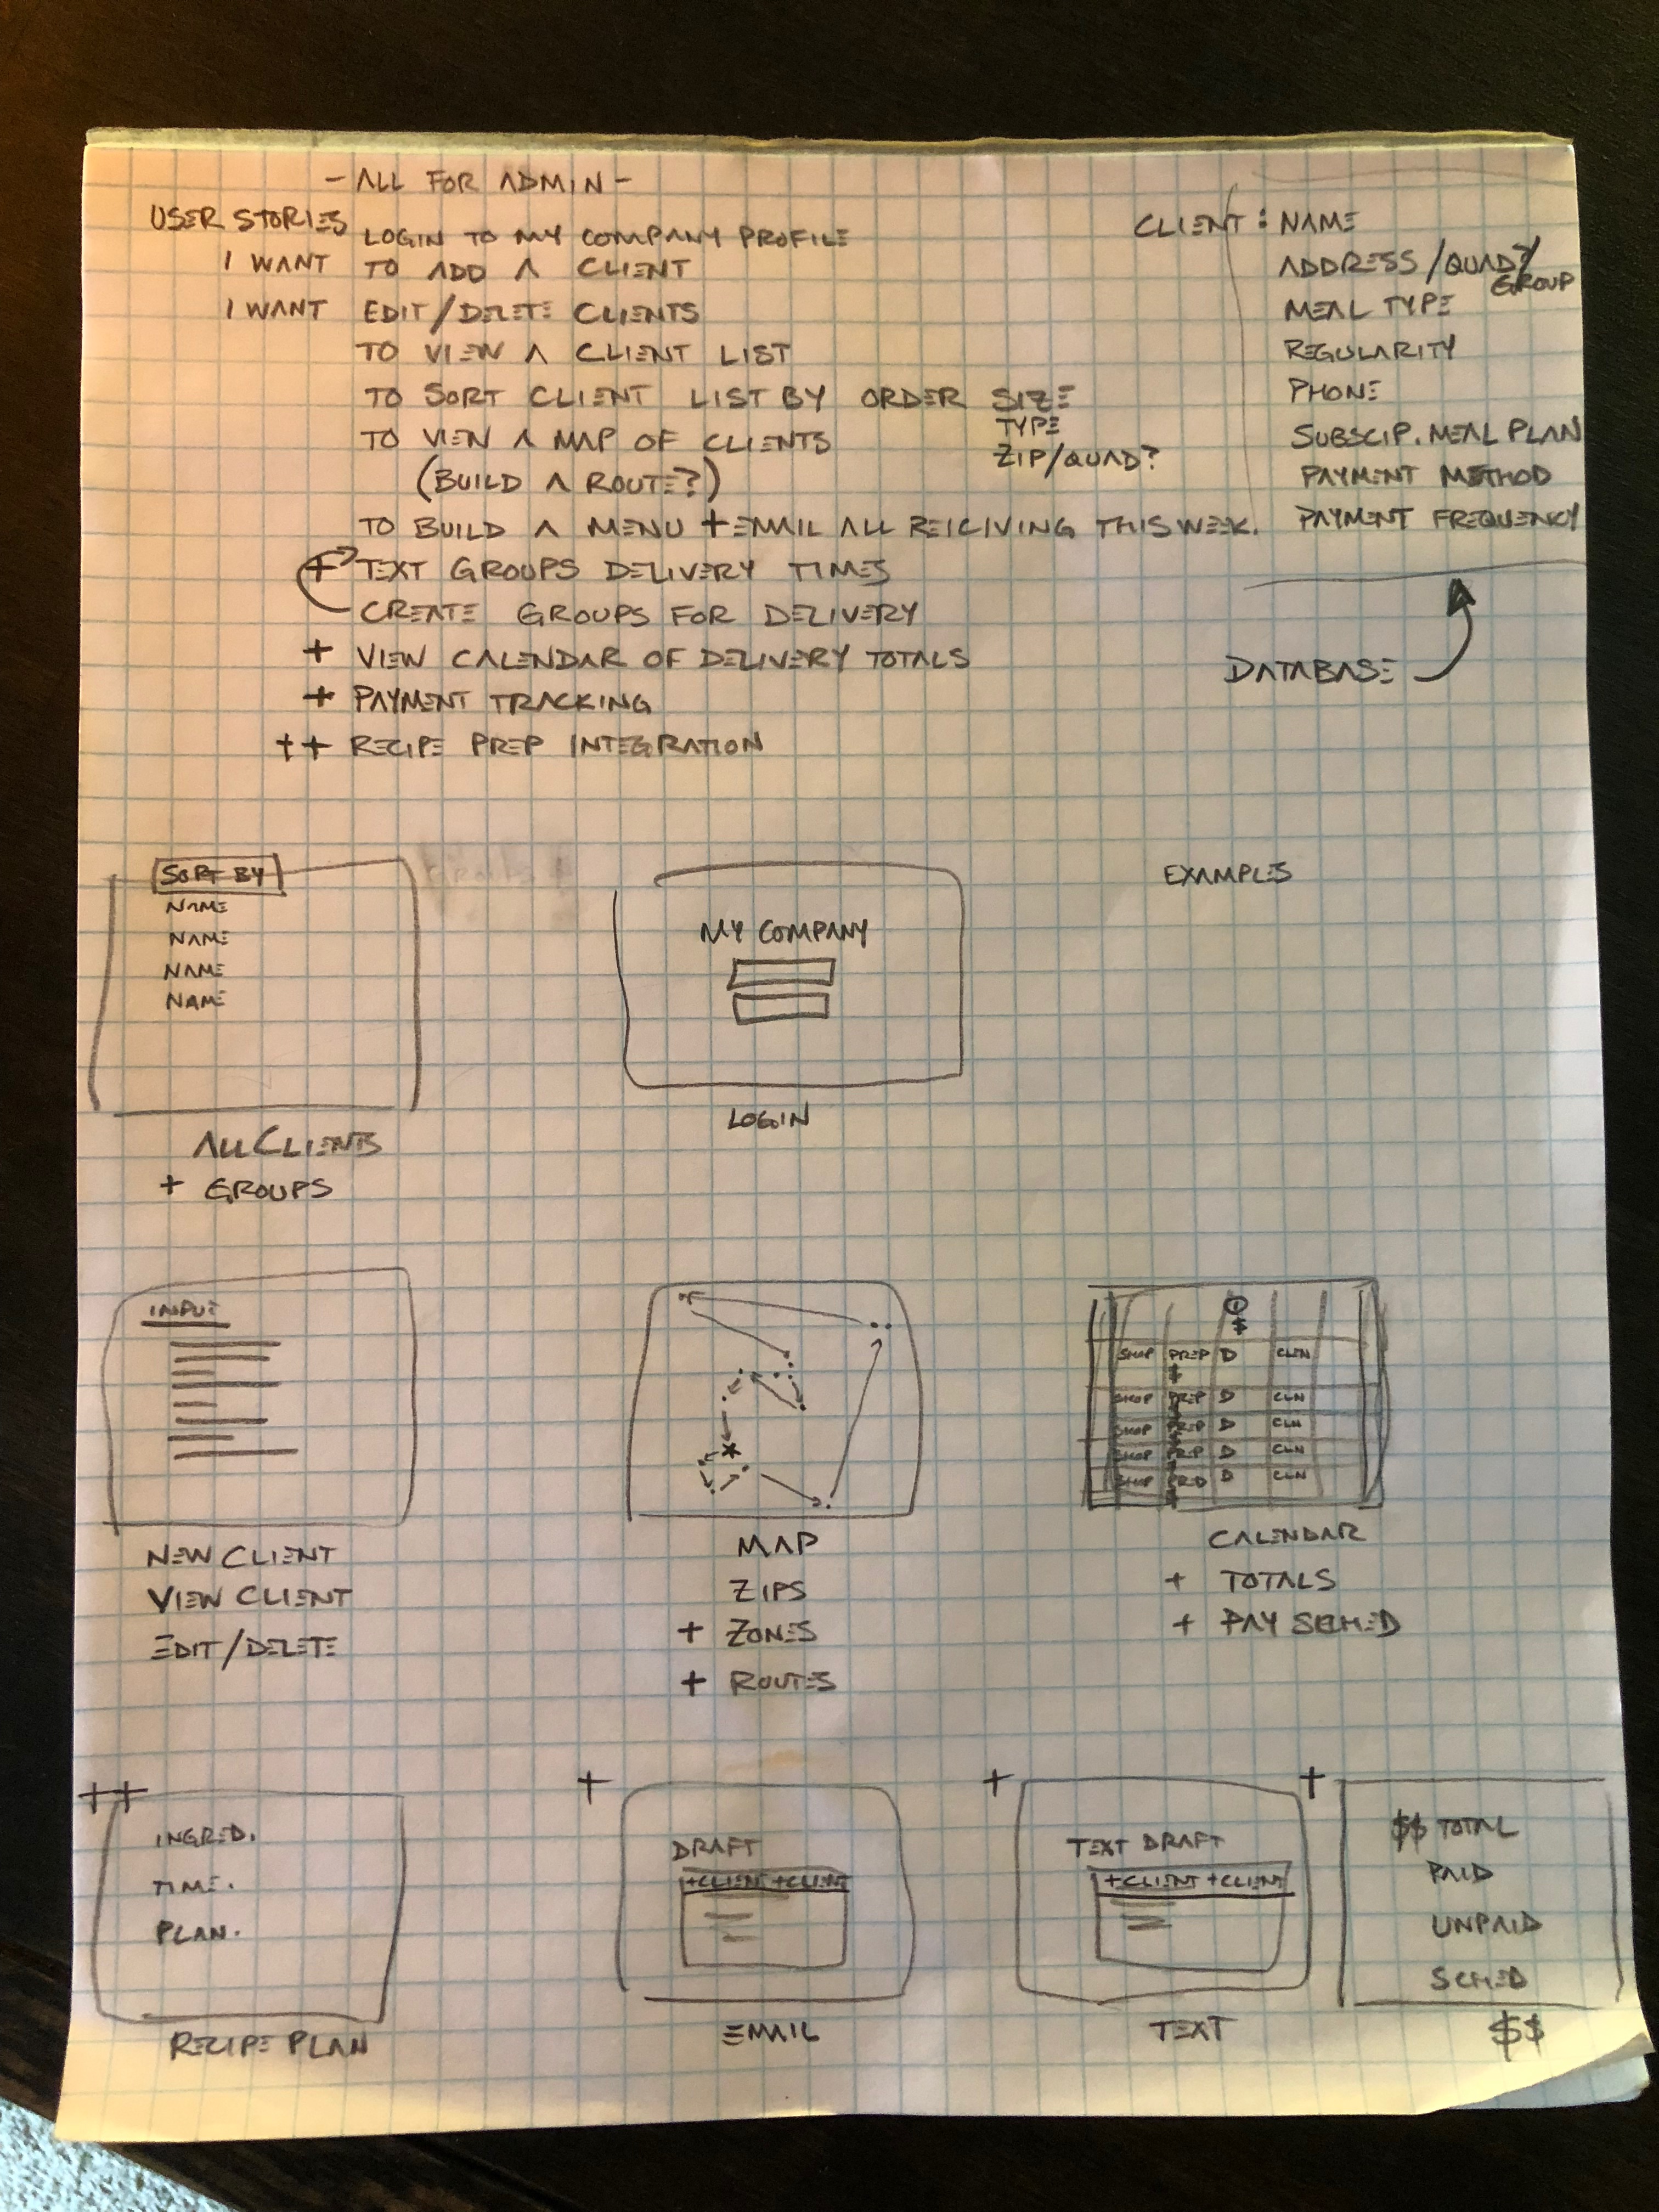 - ALL FOR ADMIN -
USER STORIES
LOGIN TO MY COMPANY PROFILE
I WANT TO ADD A CLIENT
I WANT EDIT/DELETE CLIENTS
TO VIEW A CLIENT LIST
TO SORT CLIENT LIST BY ORDER SIZE
TYPE
ZIP/QUAD?
TO VIEW A MAP OF CLIENTS
(BUILD A ROUTE?)
TO BUILD A MENU + EMAIL ALL REICIVING THIS WEEK.
+ TEXT GROUPS DELIVERY TIMES
CREATE GROUPS FOR DELIVERY
+ VIEW CALENDAR OF DELIVERY TOTALS
+ PAYMENT TRACKING
++ RECIPE PREP INTEGRATION
CLIENT : NAME
ADDRESS/QUAD?/
GROUP
MEAL TYPE
REGULARITY
PHONE
SUBSCIP. MEAL PLAN
PAYMENT METHOD
PAYMENT FREQUENCY
DATABASE
SORT BY
NAME
NAME
NAME
NAME
ALL CLIENTS
+ GROUPS
MY COMPANY
LOGIN
EXAMPLES
INPUT
NEW CLIENT
VIEW CLIENT
EDIT/DELETE
MAP
ZIPS
+ ZONES
+ ROUTES
SHOP PREP D CLN
$
SHOP PREP D CLN
SHOP PREP D CLN
SHOP PREP D CLN
SHOP PREP D CLN
CALENDAR
+ TOTALS
+ PAY SCHED
++
INGRED.
TIME.
PLAN.
RECIPE PLAN
+
DRAFT
+CLIENT +CLIENT
EMAIL
+
TEXT DRAFT
+CLIENT +CLIENT
TEXT
+
$$ TOTAL
PAID
UNPAID
SCHED
$$